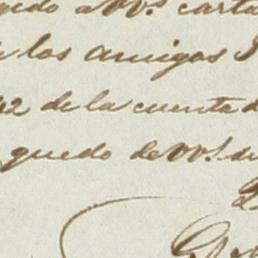 a VV.s carta
los amigos
42 de la cuenta d
quedo de VV.s su